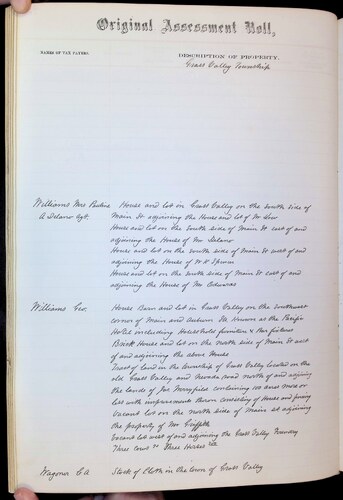 Original Assessment Roll,
NAMES OF TAX PAYERS.
DESCRIPTION OF PROPERTY.
Grass Valley Township
Williams Mrs House and lot in Grass Valley on the south side of
A Delano Agt. Main St adjoining the House and lot of Mr
House and lot on the south side of Main St east of and
adjoining the House of Mr Delano
House and lot on the south side of Main St west of and
adjoining the House of
House and lot on the south side of Main St east of and
adjoining the House of Mr Edwards
Williams Geo. House Barn and lot in Grass Valley on the southwest
corner of Main and Auburn Sts known as the Pacific
Hotel including Household furniture & Bar fixtures
Brick House and lot on the north side of Main St west
of and adjoining the above
Tract of land in the township of Grass Valley located on the
old Grass Valley and Nevada road north of and adjoining
the lands of containing 100 acres more or
less with improvements thereon consisting of House and fencing
Vacant lot on the north side of Main st adjoining
the property of Mrs Griffith
Vacant lot west of and adjoining the Grass Valley Foundry
Three cows Three Horses
Wagoner C A Stock of Cloth in the town of Grass Valley